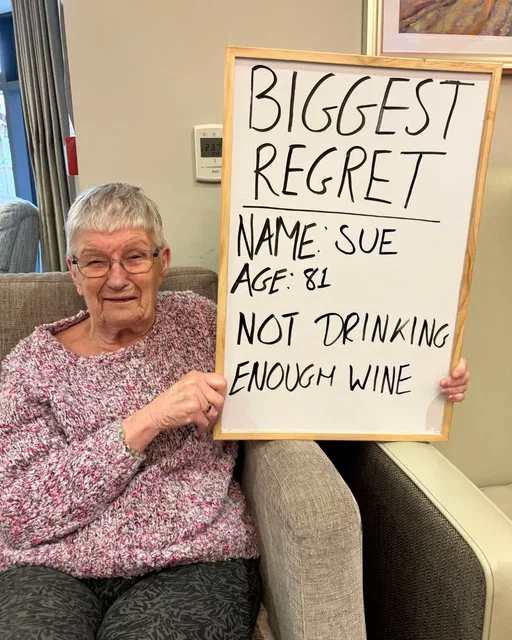 BIGGEST
REGRET
NAME: SUE
AGE: 81
NOT DRINKING
ENOUGH WINE